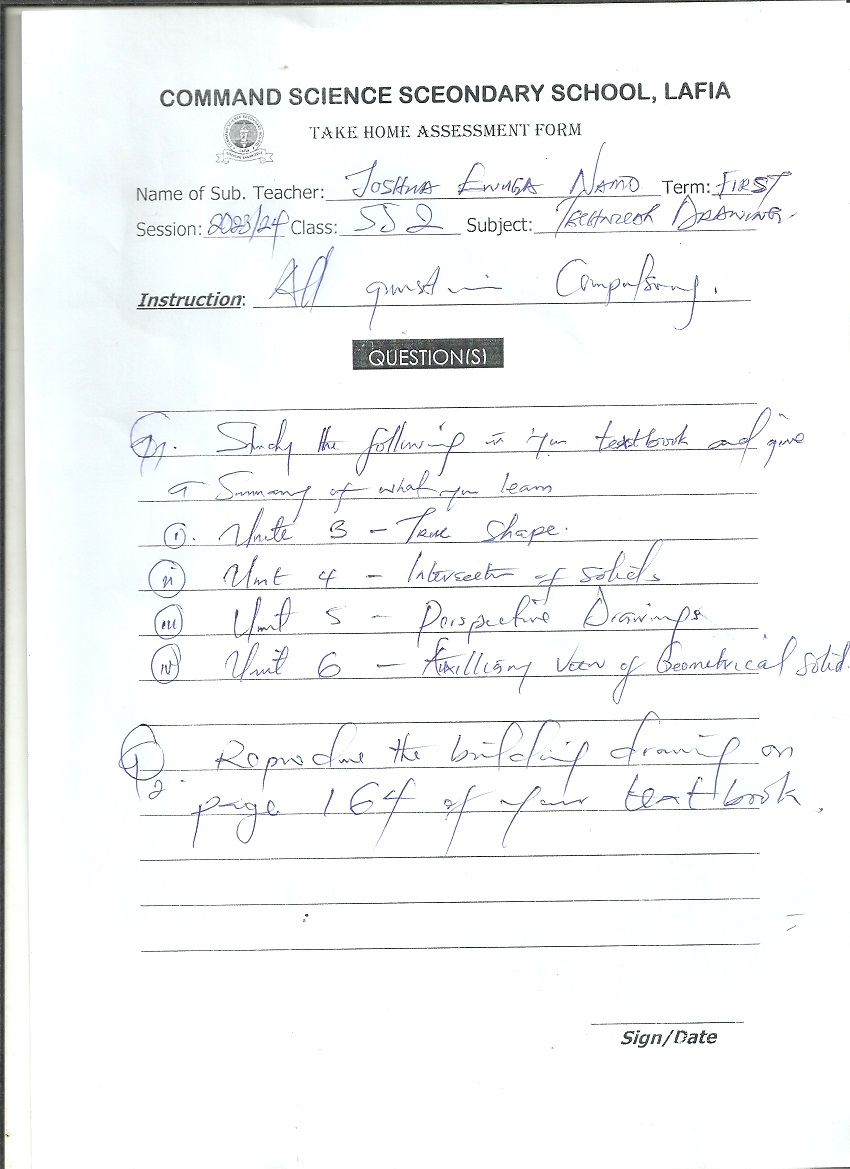 COMMAND SCIENCE SCEONDARY SCHOOL, LAFIA
TAKE HOME ASSESSMENT FORM
Name of Sub. Teacher: Joshua Enuga Namo Term: First
Session: 2023/24 Class: SS 2 Subject: Technical Drawing.
Instruction: All question Compulsory.
QUESTION(S)
Q1. Study the following in your textbook and give
a Summary of what you learn
i. Unite 3 - True Shape.
ii Unit 4 - Intersection of solids
iii Unit 5 - Perspective Drawings
iv Unit 6 - Auxilliary view of Geometrical solid.
Q2. Reproduce the building drawing on
page 164 of your textbook.
Sign/Date